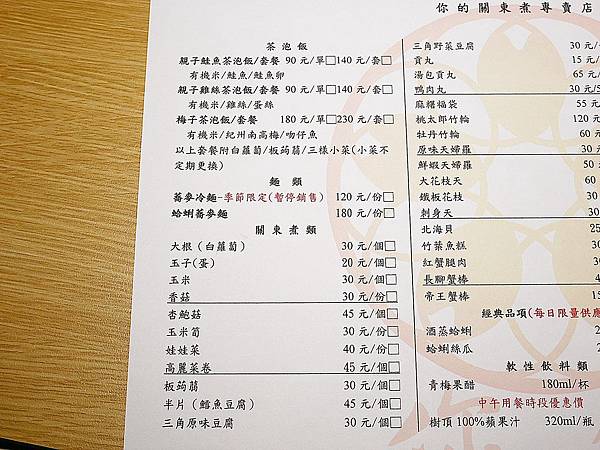 你的關東煮專賣店
茶泡飯
親子鮭魚茶泡飯/套餐 90 元/單□140 元/套□
有機米/鮭魚/鮭魚卵
親子雞絲茶泡飯/套餐 90 元/單□140 元/套□
有機米/雞絲/蛋絲
梅子茶泡飯/套餐 180 元/單□230 元/套□
有機米/紀州南高梅/吻仔魚
以上套餐附白蘿蔔/板蒟蒻/三樣小菜(小菜不
定期更換)
麵 類
蕎麥冷麵-季節限定(暫停銷售) 120 元/份□
蛤蜊蕎麥麵 180 元/份□
關東煮類
大根 (白蘿蔔) 30 元/個□
玉子(蛋) 20 元/個□
玉米 30 元/個□
香菇 30 元/份□
杏鮑菇 45 元/個□
玉米筍 30 元/份□
娃娃菜 40 元/份□
高麗菜卷 45 元/個□
板蒟蒻 30 元/個□
半片 (鱈魚豆腐) 45 元/個□
三角原味豆腐 30 元/個□
三角野菜豆腐 30 元/
貢丸 15 元/
湯包貢丸 65 元/
鴨肉丸 30 元/
麻糬福袋 55 元
桃太郎竹輪 120 元
牡丹竹輪 60 元
原味天婦羅 30 元
鮮蝦天婦羅 50
大花枝天 60
鐵板花枝 30
刺身天 30
北海貝 25
竹葉魚糕 30
紅蟹腿肉 30
長腳蟹棒 4
帝王蟹棒 15
經典品項(每日限量供應
酒蒸蛤蜊
蛤蜊絲瓜
軟性飲料類
青梅果醋 180ml/杯
中午用餐時段優惠價
樹頂 100%蘋果汁 320ml/瓶